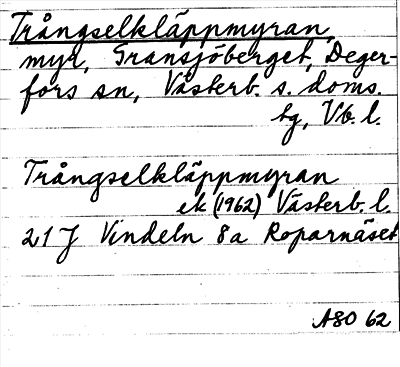 Trångselkläppmyran,
myr, Gransjöberget, Deger-
fors sn, Västerb. s. doms.
tg, Vb. l.
Trångselkläppmyran
ek (1962) Västerb. l.
21 J Vindeln 8a Roparnäset
A80 62